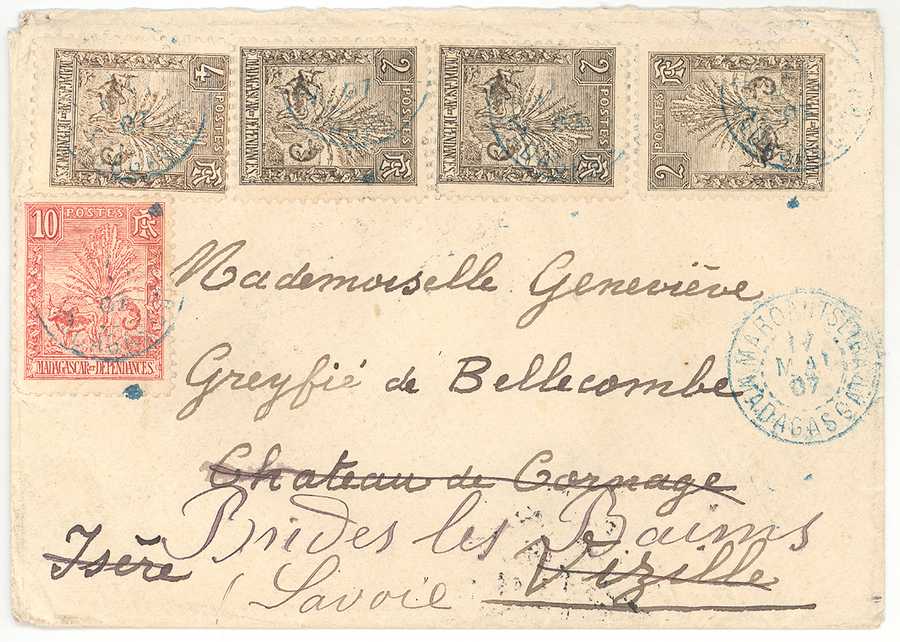 4 POSTES RF
MADAGASCAR ET DÉPENDANCES
2 POSTES RF
MADAGASCAR ET DÉPENDANCES
2 POSTES RF
MADAGASCAR ET DÉPENDANCES
2 POSTES RF
MADAGASCAR ET DÉPENDANCES
10 POSTES RF
MADAGASCAR ET DÉPENDANCES
Mademoiselle Geneviève
Greyfié de Bellecombe
MAI
07
MADAGASCAR
Chateau de Cornage
Brides les Bains
Isère
Vizille
(Savoie